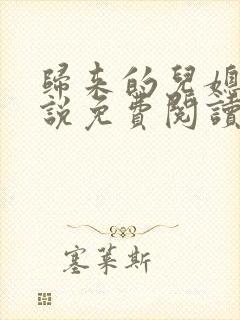 歸来的兒媳
說免費閱讀
塞萊斯